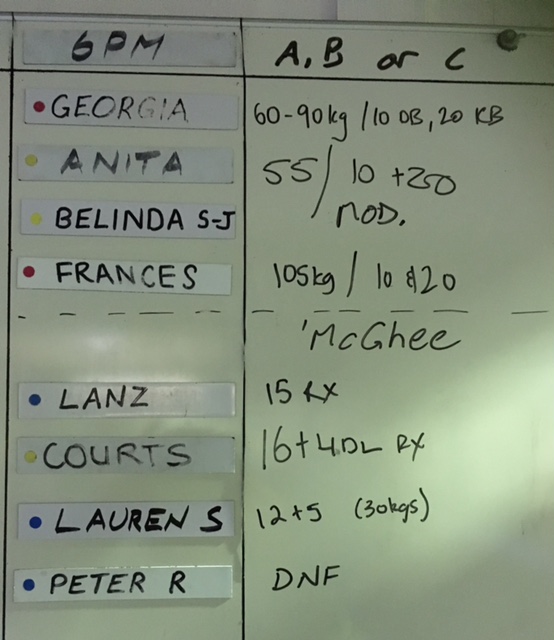 6PM A, B or C
GEORGIA 60-90kg / 10 DB, 20 KB
ANITA 55 / 10 +250
MOD.
BELINDA S-J
FRANCES 105kg / 10 & 20
'McGhee
LANZ 15 RX
COURTS 16+4DL RX
LAUREN S 12+5 (30kgs)
PETER R DNF